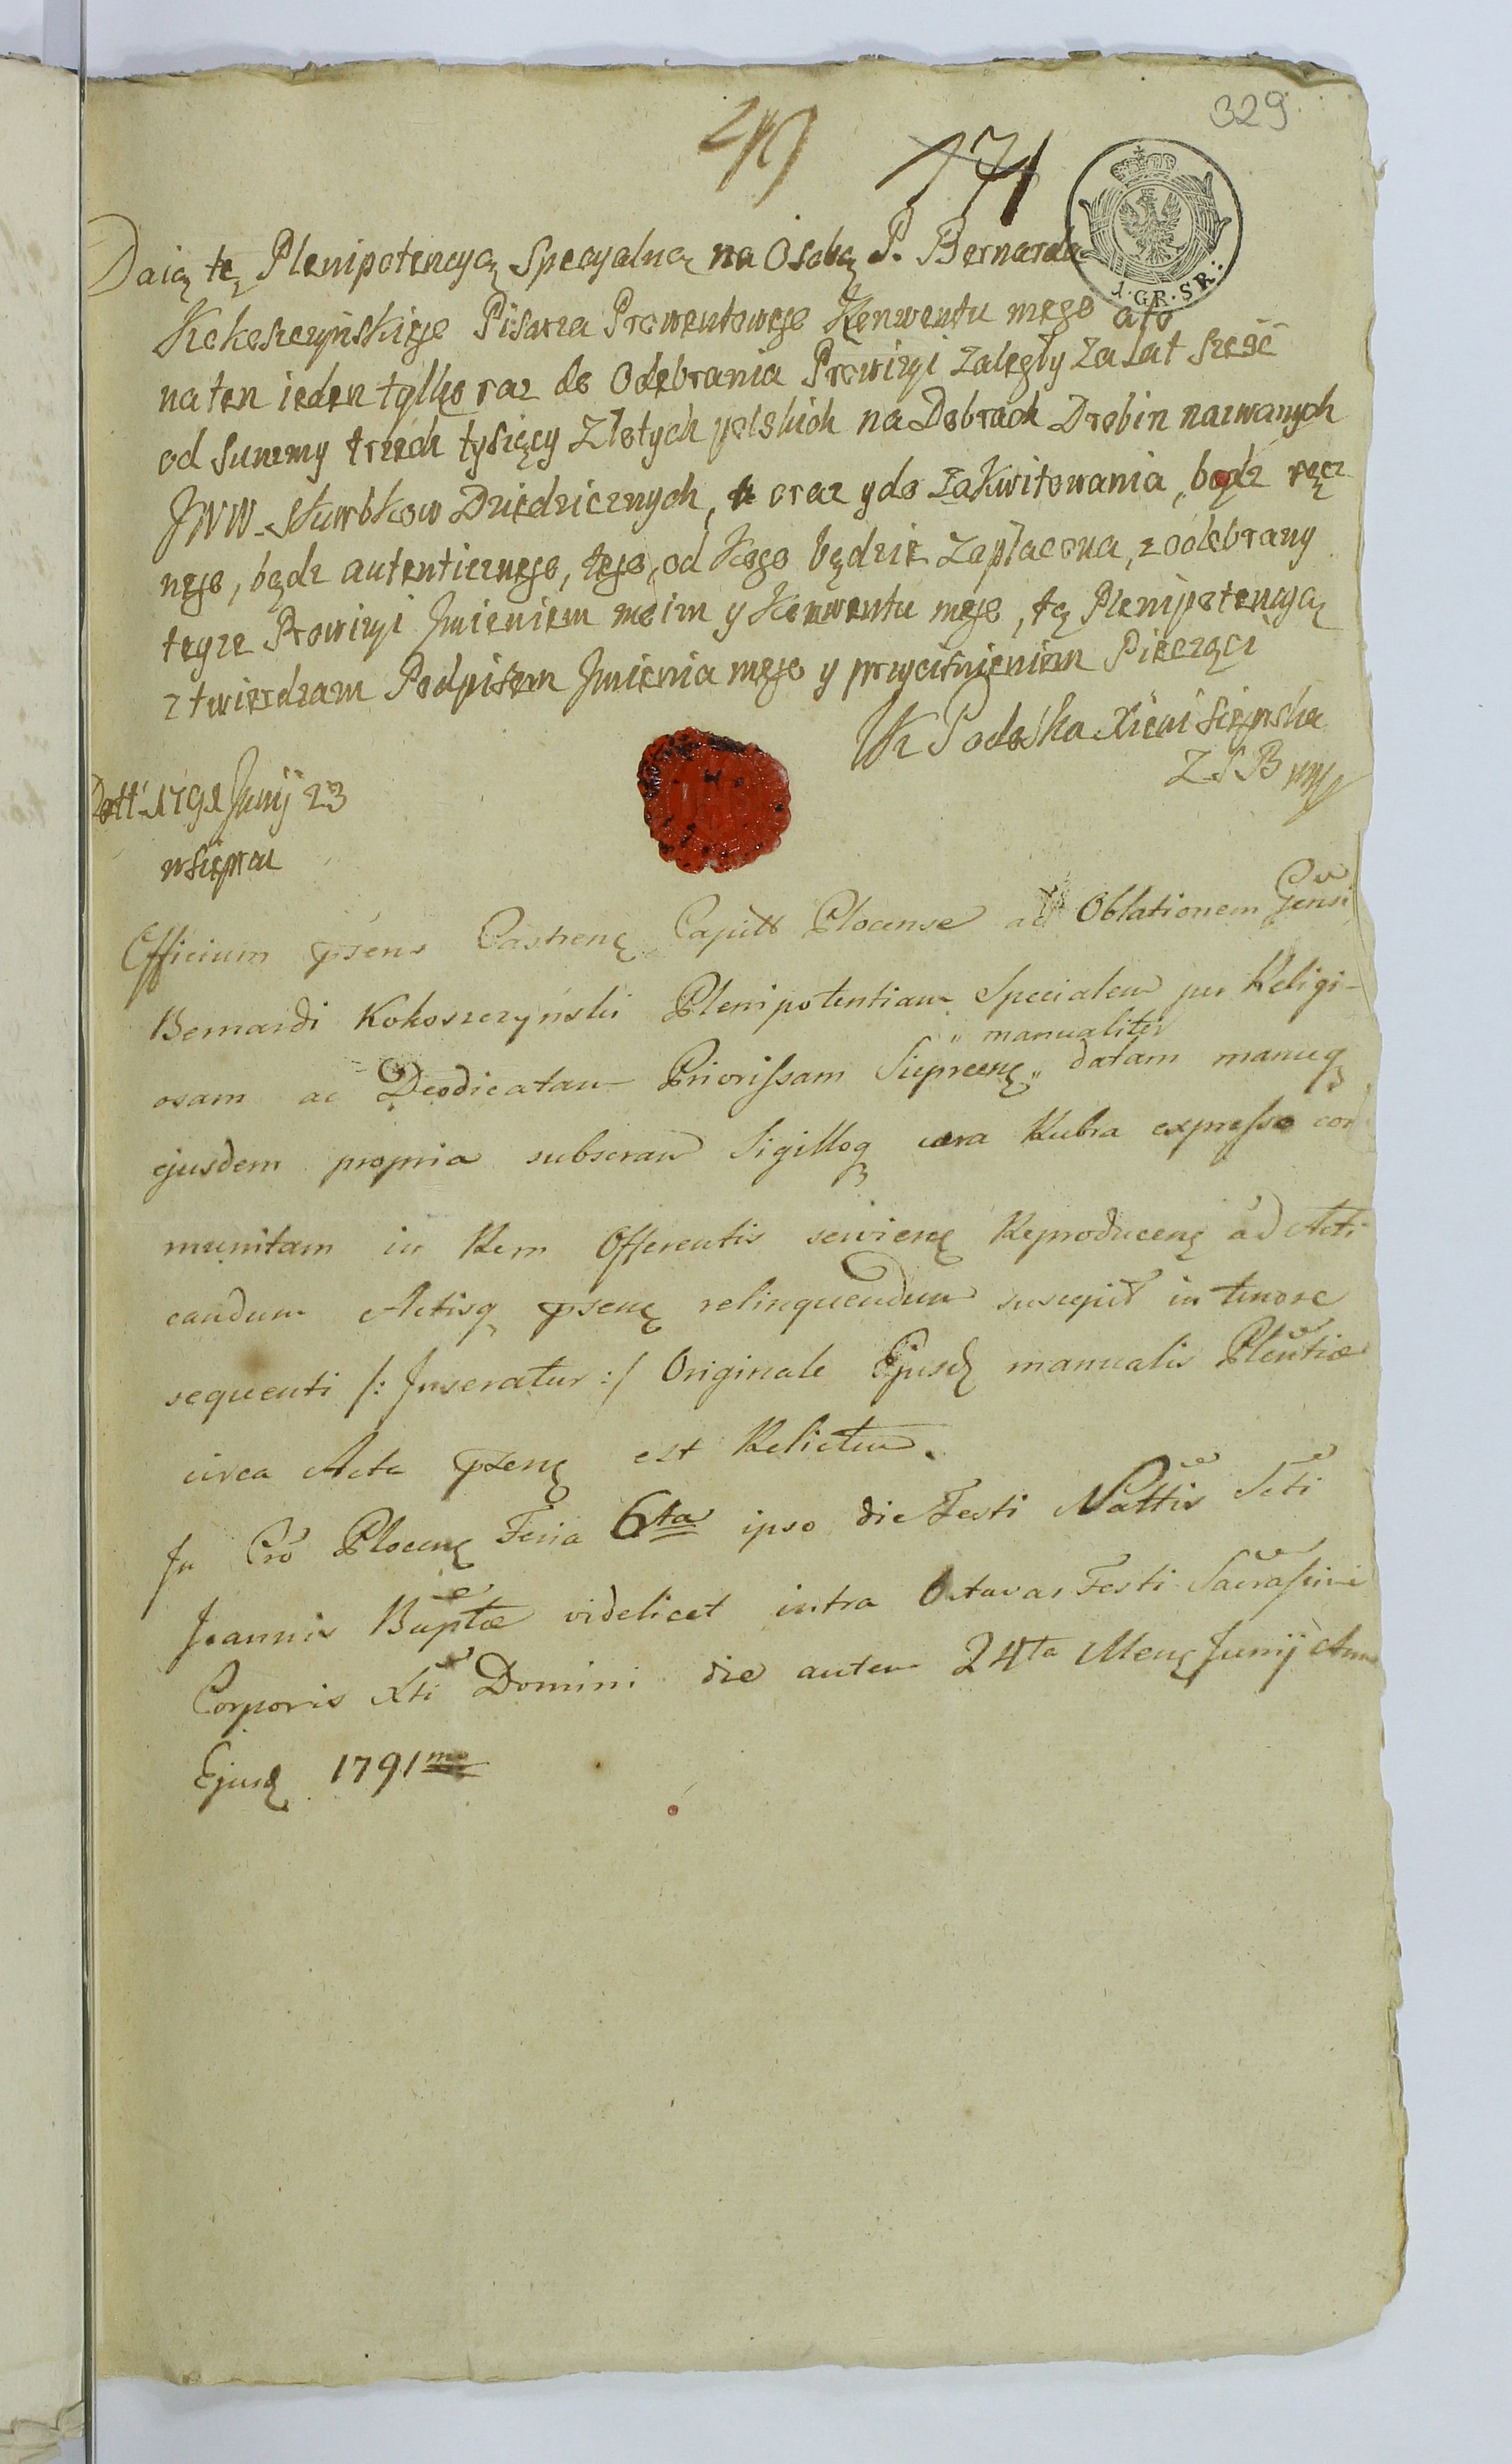 329
171
1·GR·SR:
Daię tę Plenipotencyą Specyalną na Osobę P. Bernarda
Kokoszczyńskiego Pisarza Prowentowego Konwentu mego ato
na ten ieden tylko raz do Odebrania Prowizyi zaległy za lat sześć
od Summy trzech tysięcy Złotych polskich na Dobrach Drobin nazwanych
JWW Dziedzicznych, oraz y do zakwitowania, bądz ręcz
nego, bądz autenticznego, tego, od kogo będzie zapłacona, z odebrany
teyze Prowizyi Jmieniem moim y Konwentu mego, tę Plenipotencyą
ztwierdzam Podpisem Jmienia mego y przyciśnieniem Pieczęci
Podoska Xieni Sieprska
Z S B mp
Datt 1791 Junij 23
w Sieprcu
Officium psens Castrenę Capitt Plocense ad Oblationem Gensi
Bernardi Kokoszczynski Plenipotentiam Specialem per Religi-
" manualiter
osam ac Deodicatam Priorissam Sieprcenę " datam manuq
ejusdem propria subscram Sigilloq cera Rubra expresso com
munitam in Rem Offerentis servienę Reproducenę ad Acti
candum Actisq psenę relinquendum suscepit in tenore
sequenti /: Inseratur :/ Originale Ejusdę manualis Pleñtiæ
circa Acta psenę est Relictum.
In Cro Plocenę Feria 6ta ipso die Festi Nattis Scti
Joannis Baptæ videlicet intra Octavas Festi Sacrassimi
Corporis Xti Domini die autem 24ta Menę Junij Anno
Ejusdę 1791mo